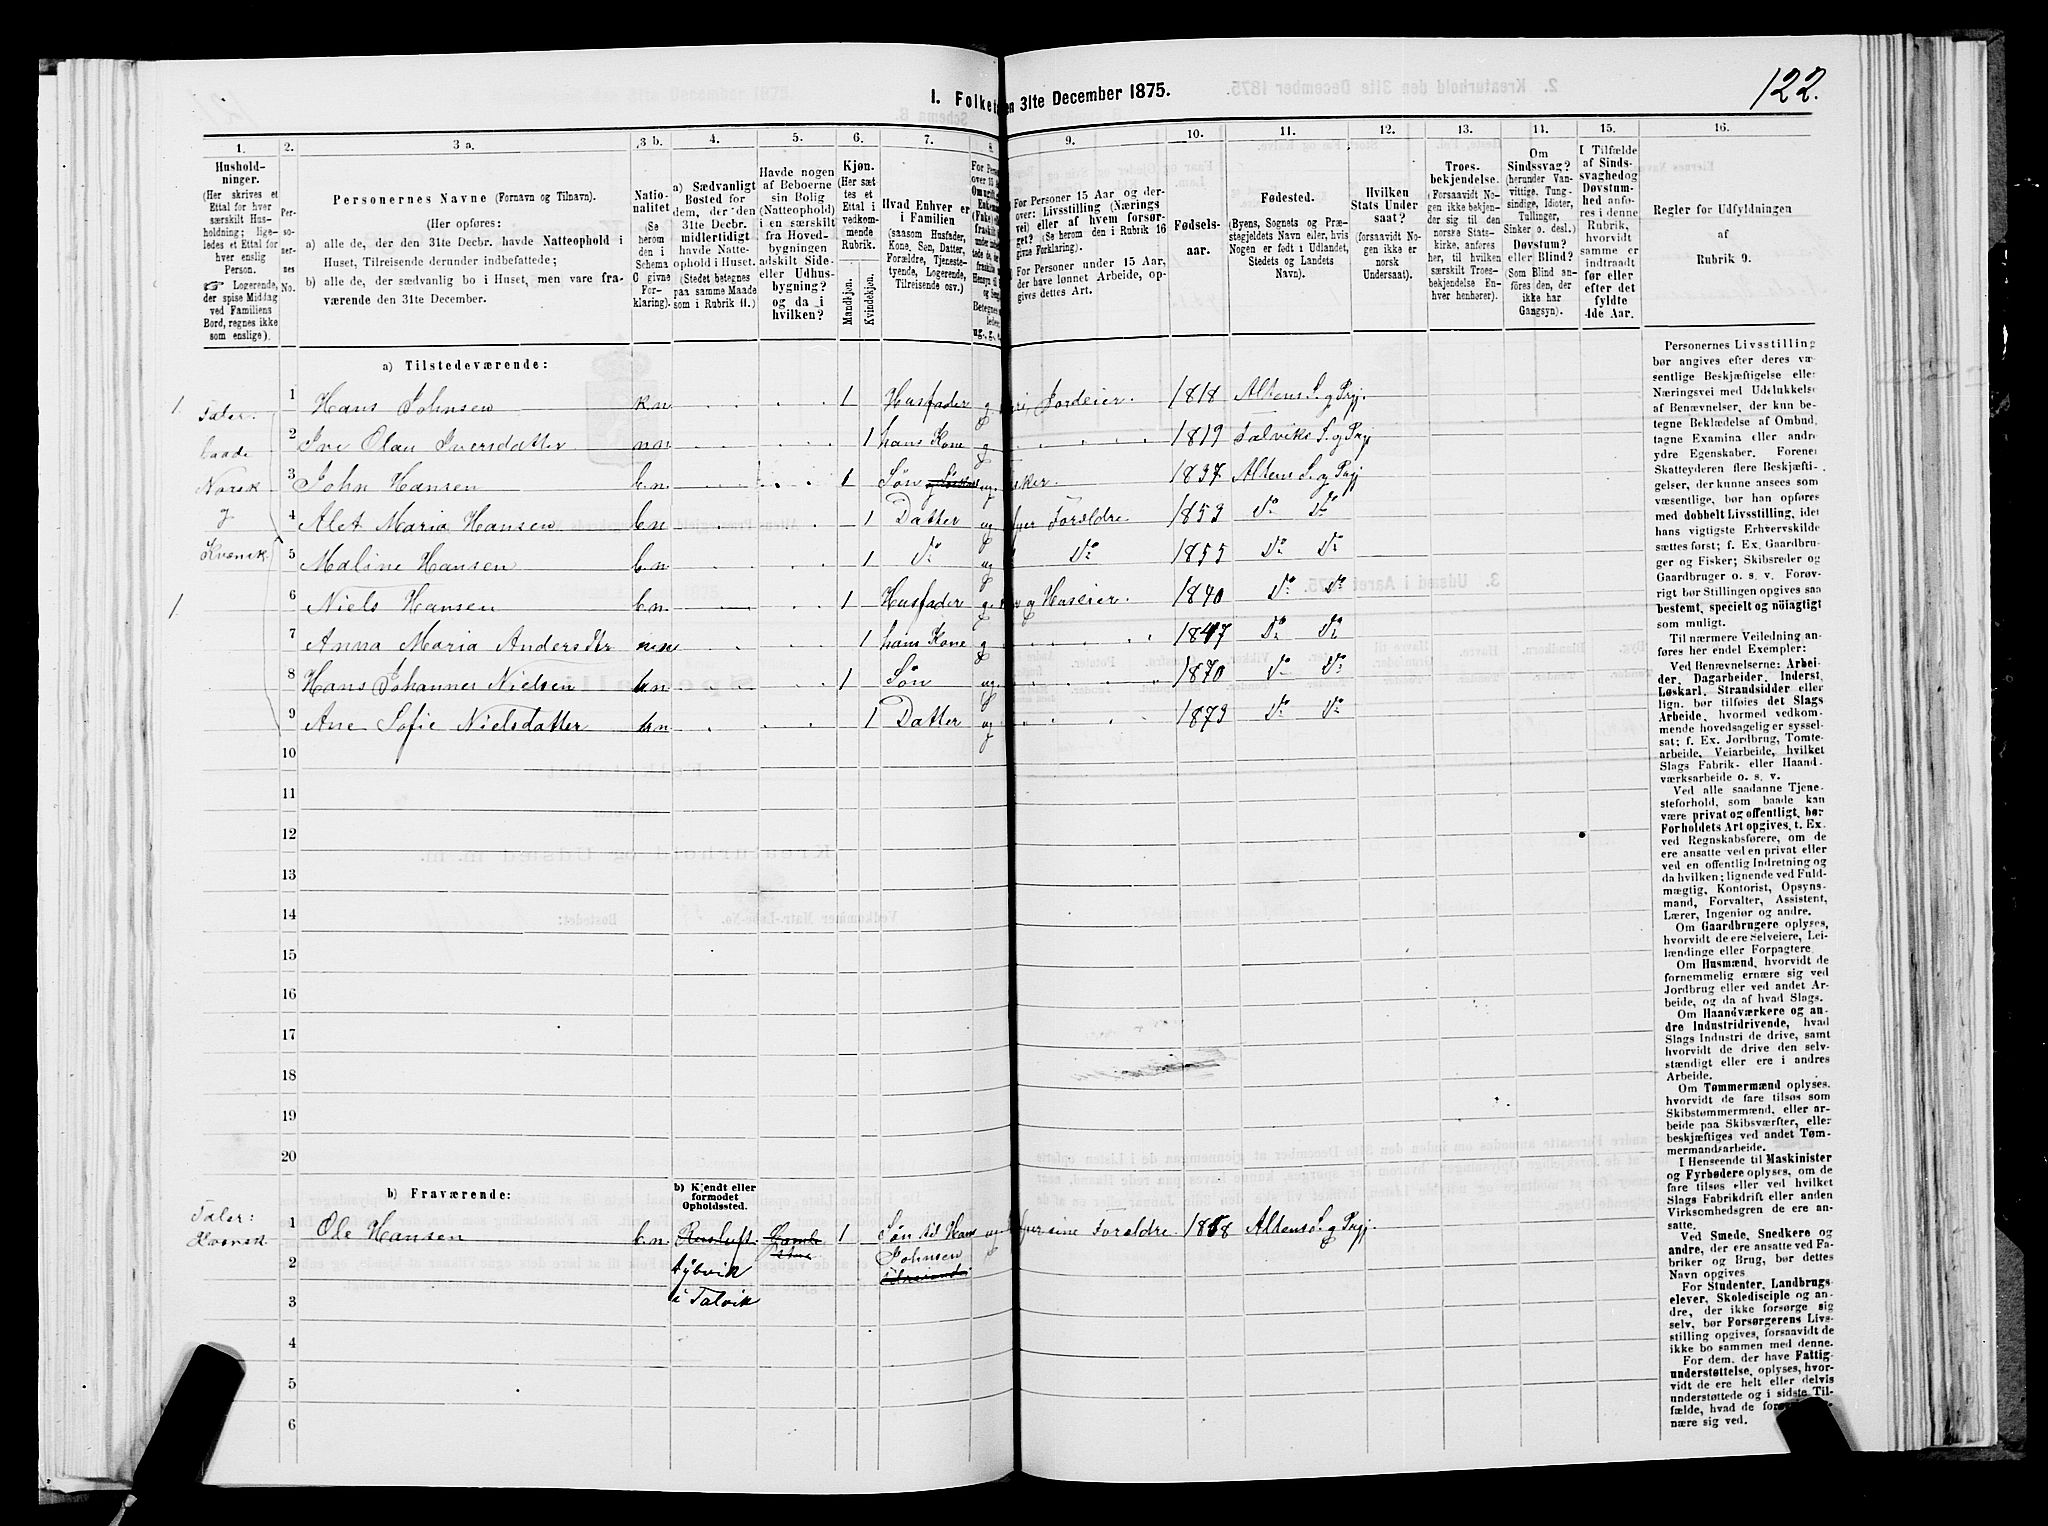 122.
I. Folket
en 31te December 1875.
1. 2. 3 a. 3 b. 4. 5. 6. 7. 8. 9. 10. 11. 12. 13. 14. 15. 16.
Hushold-
ninger.
(Her skrives et
Ettal for hver
særskilt Hus-
holdning; lige-
ledes et Ettal for
hver enslig
Person.
☞ Logerende,
der spise Middag
ved Familiens
Bord, regnes ikke
som enslige).
Per-
so-
ner-
nes
No.
Personernes Navne (Fornavn og Tilnavn).
(Her opføres:
a) alle de, der den 31te Decbr. havde Natteophold i
Huset, Tilreisende derunder indbefattede;
b) alle de, der sædvanlig bo i Huset, men vare fra-
værende den 31te December.
Natio-
nalitet
Se
herom
den i
Schema
C givne
For-
klaring).
a) Sædvanligt
Bosted for
dem, der den
31te Decbr.
midlertidigt
havde Natte-
ophold i Huset.
(Stedet betegnes
paa samme Maade
som i Rubrik 11.)
Havde nogen
af Beboerne
sin Bolig
(Natteophold)
i en særskilt
fra Hoved-
bygningen
adskilt Side-
eller Udhus-
bygning?
og da i
hvilken?
Kjøn.
(Her sæt-
tes et
Ettal i
vedkom-
mende
Rubrik.
Mandkjøn.
Kvindekjøn.
Hvad Enhver er
i Familien
(saasom Husfader,
Kone, Søn, Datter,
Forældre, Tjeneste-
tyende, Logerende,
Tilreisende osv.)
For Personer 15 Aar og der-
over: Livsstilling (Nærings
vei) eller af hvem forsør-
get? (Se herom den i Rubrik 16
givne Forklaring).
For Personer under 15 Aar, op-
gives dettes Art.
Fødsels-
aar.
Fødested.
(Byens, Sognets og Præ-
stegjeldets Navn eller, hvis
Nogen er født i Udlandet,
Stedets og Landets
Navn).
Hvilken
Stats Under
saat?
(forsaavidt No-
gen ikke er
norsk
Undersaat).
Troes-
bekjendelse.
(Forsaavidt No-
gen ikke bekjen-
der sig til den
norske Stats-
kirke, anføres
her, til hvilken
særskilt Troes-
bekjendelse En-
hver henhører).
Om
Sindssvag?
(herunder Van-
vittige, Tung-
sindige, Idioter,
Tullinger,
Sinker o. desl.)
Døvstum?
eller Blind?
(Som Blind an-
føres den, der
ikke har
Gangsyn).
I Tilfælde
af Sinds-
svaghed og
Døvstum-
hed anføres
i denne
Rubrik,
hvorvidt
samme er
indtraadt
før eller
efter det
fyldte
4de Aar.
Regler for Udfyldningen
af
Rubrik 9.
a) Tilstedeværende:
1 1 Hans Johnsen k.n 1 Husfader g Jordeier. 1818 Altens S. g Prgj.
Taler
baade
Norsk
g
Kvænsk.
2 Ive Olau Iversdatter n.n 1 hans Kone g 1819 Talviks S. g Prgj
3 John Hansen b.n 1 Søn ug. 1837 Altens S. g Prgj
4 Alet Maria Hansen b.n 1 Datter ug Forældre 1853 Do Do
5 Maline Hansen b.n 1 Do ug Do 1855 Do Do
1 6 Niels Hansen b.n 1 Husfader g. g Huseier. 1840 Do Do
7 Anna Maria Andersdtr n.n 1 hans Kone g 1847 Do Do
8 Hans Johannes Nielsen b.n 1 Søn ug 1870 Do Do
9 Ane Sofie Nielsdatter b.n 1 Datter ug 1873 Do Do
10
11
12
13
14
15
16
17
18
19
20
b) Fraværende:
b) Kjendt eller
formodet
Opholdssted.
Taler:
Kvænsk.
1 Ole Hansen b.n 1 Søn til Hans ug sine Forældre. 1858 Altens S. g Prgj.
2 Johnsen
3 i Talvik
4
5
6
Personernes Livsstilling
bør angives efter deres væ-
sentlige Beskjæftigelse eller
Næringsvei med Udelukkelse
af Benævnelser, der kun be-
tegne Beklædelse af Ombud,
tagne Examina eller andre
ydre Egenskaber. Forener
Skatteyderen flere Beskjæfti-
gelser, der kunne ansees som
væsentlige, bør han opføres
med dobbelt Livsstilling, idet
hans vigtigste Erhvervskilde
sættes først; f. Ex. Gaardbru-
ger og Fisker; Skibsreder og
Gaardbruger o. s. v. Forøv-
rigt bør Stillingen opgives saa
bestemt, specielt og nøiagtigt
som muligt.
Til nærmere Veiledning an-
føres her endel Exempler:
Ved Benævnelserne: Arbei-
der, Dagarbeider, Inderst,
Løskarl, Strandsidder eller
lign. bør tilføies det Slags
Arbeide, hvormed vedkom-
mende hovedsagelig er syssel-
sat; f. Ex. Jordbrug, Tomte-
arbeide, Veiarbeide, hvilket
Slags Fabrik- eller Haand-
værksarbeide o. s. v.
Ved alle saadanne Tjene-
steforhold, som baade kan
være privat og offentligt, bør
Forholdets Art opgives, t. Ex.
ved Regnskabsførere, om de
ere ansatte ved en privat eller
ved en offentlig Indretning og
da hvilken; lignende ved Fuld-
mægtig, Kontorist, Opsyns-
mand, Forvalter, Assistent,
Lærer, Ingeniør og andre.
Om Gaardbrugere oplyses,
hvorvidt de ere Selveiere, Lei-
lændinge eller Forpagtere
Om Husmænd, hvorvidt de
fornemmelig ernære sig ved
Jordbrug eller ved andet Ar-
beide, og da af hvad Slags.
Om Haandværkere og an-
dre Industridrivende, hvad
Slags Industri de drive, samt
hvorvidt de drive den selv-
stændigt eller ere i andres
Arbeide.
Om Tømmermænd oplyses,
hvorvidt de fare tilsøs som
Skibstømmermænd, eller ar-
beide paa Skibsværfter, eller
beskjæftiges ved andet Tøm-
mermandsarbeide.
I Henseende til Maskinister
og Fyrbødere oplyses, om de
fare tilsøs eller ved hvilket
Slags Fabrikdrift eller anden
Virksomhedsgren de ere an-
satte.
Ved Smede, Snedkere og
andre, der ere ansatte ved Fa-
briker og Brug, bør dettes
Navn opgives
For Studenter, Landbrugs-
elever, Skoledisciple og an-
dre, der ikke forsørge sig
selv, bør Forsørgerens Livs-
stilling opgives, forsaavidt de
ikke bo sammen med denne.
For dem, der have Fattig-
understøttelse, oplyses, hvor-
vidt de ere helt eller delvis
understøttede og i sidste Til-
fælde, hvad de
nære sig ved.